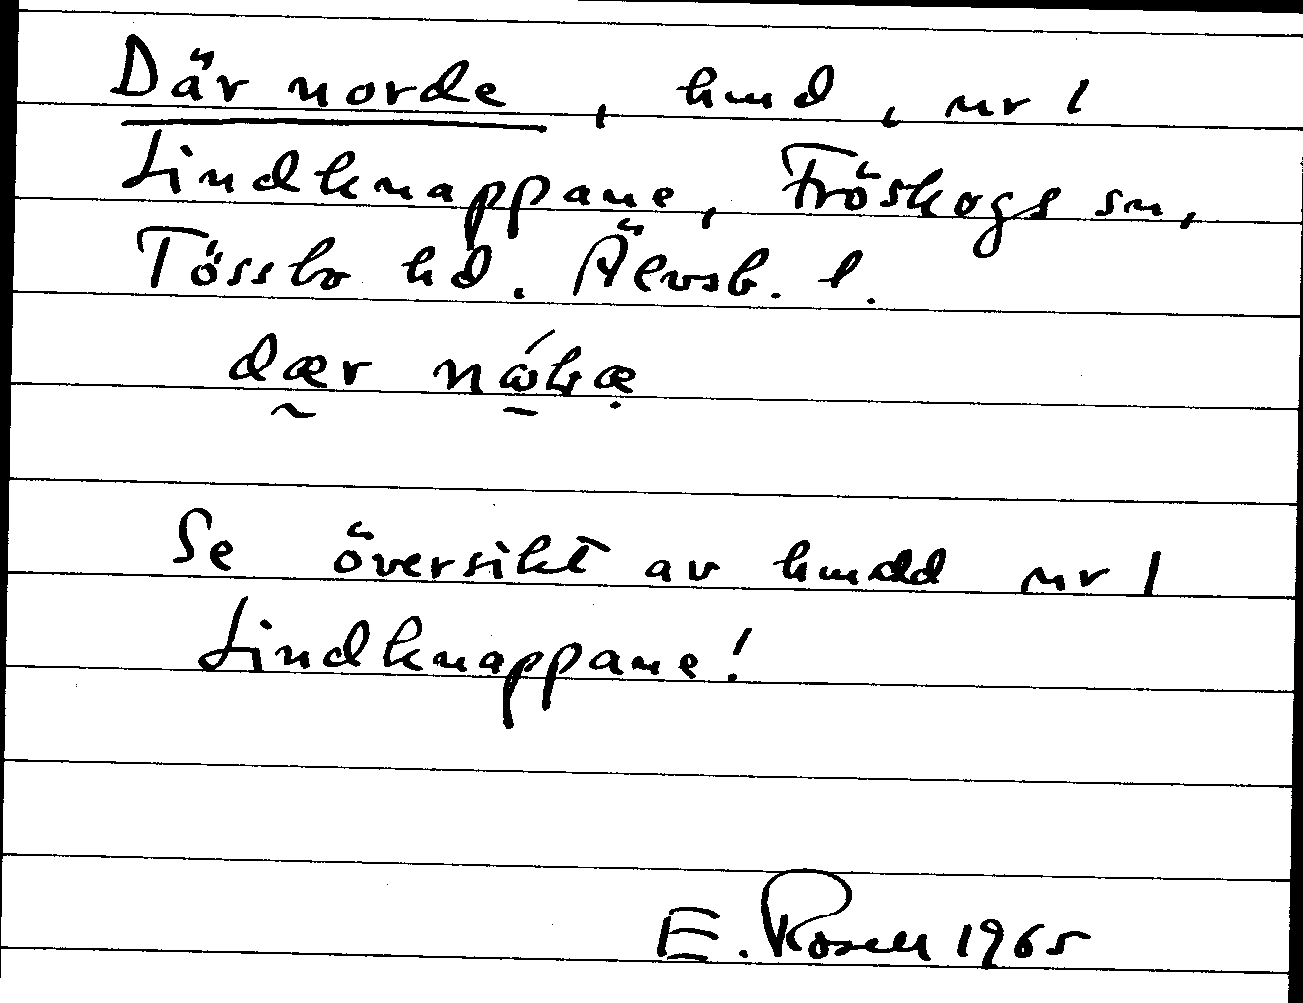 Där norde, hmd, nr 1
Lindknappane, Fröskogs sn,
Tössbo hd. Älvsb. l.
dær
Se översikt av hmdd nr 1
Lindknappane!
E. Rosell 1965